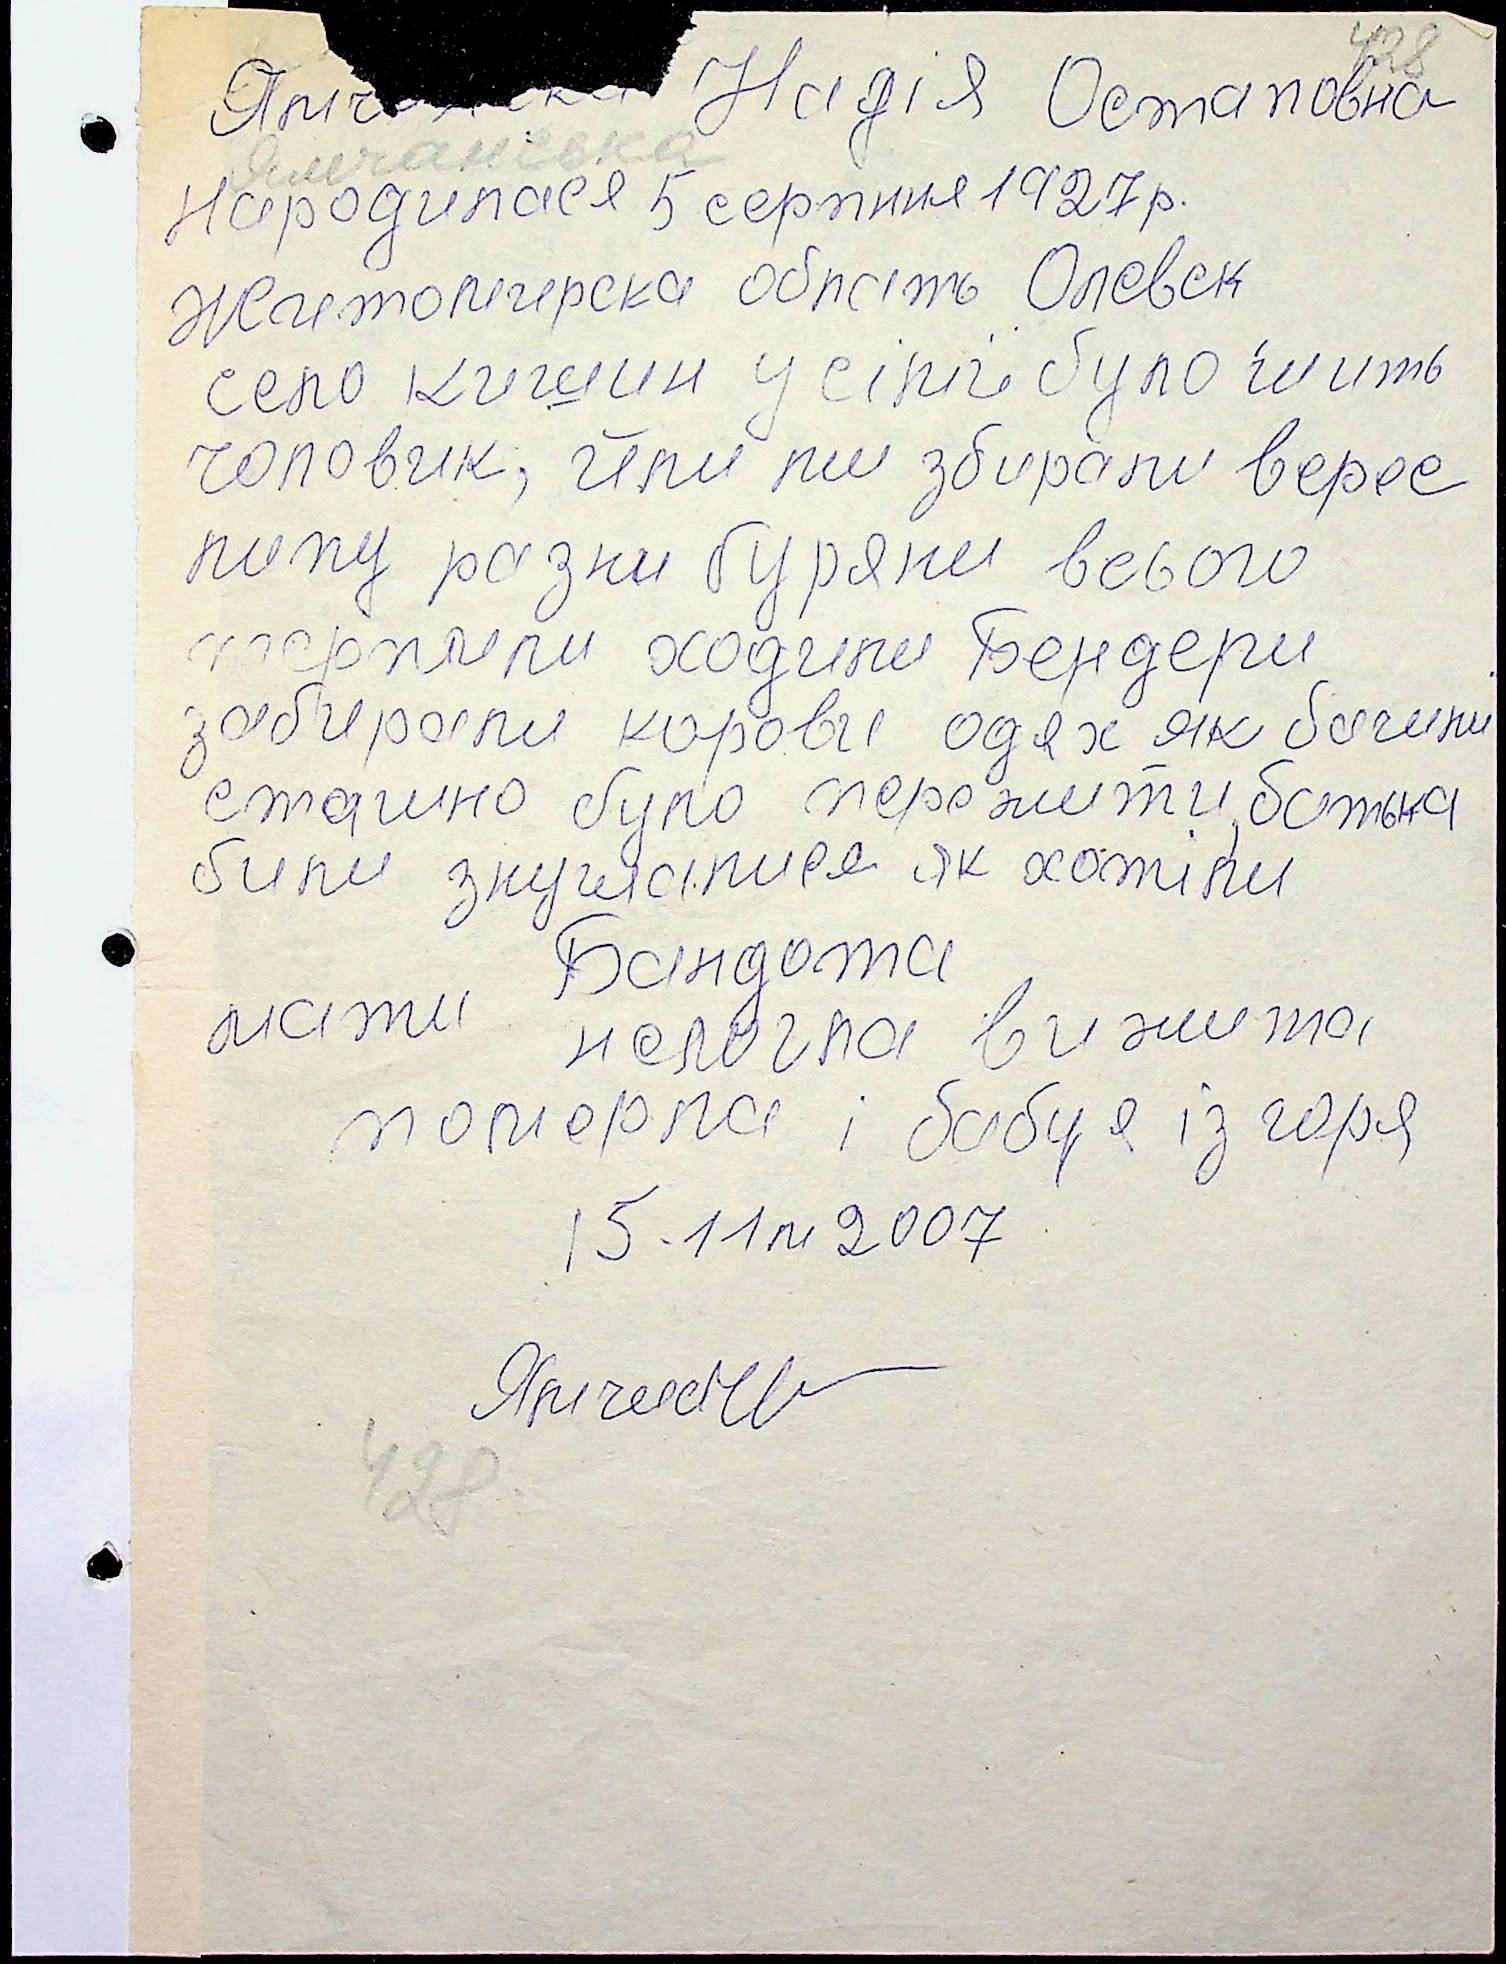 428
Ямч ска Надія Остаповна
Ямчанська
народилася 5 серпння 1927 р.
Житомирска область Олевск
село кишин у сімї було шить
чоловик, їли ми збирали верес
липу разни буряни всього
терпили ходили Бендери
забирали корови одях як бачили
сташно було пережити, батька
били знущалися як хотіли
Бандота
мати немогла вижита
померла і бабуя із горя
15.11м 2007
428